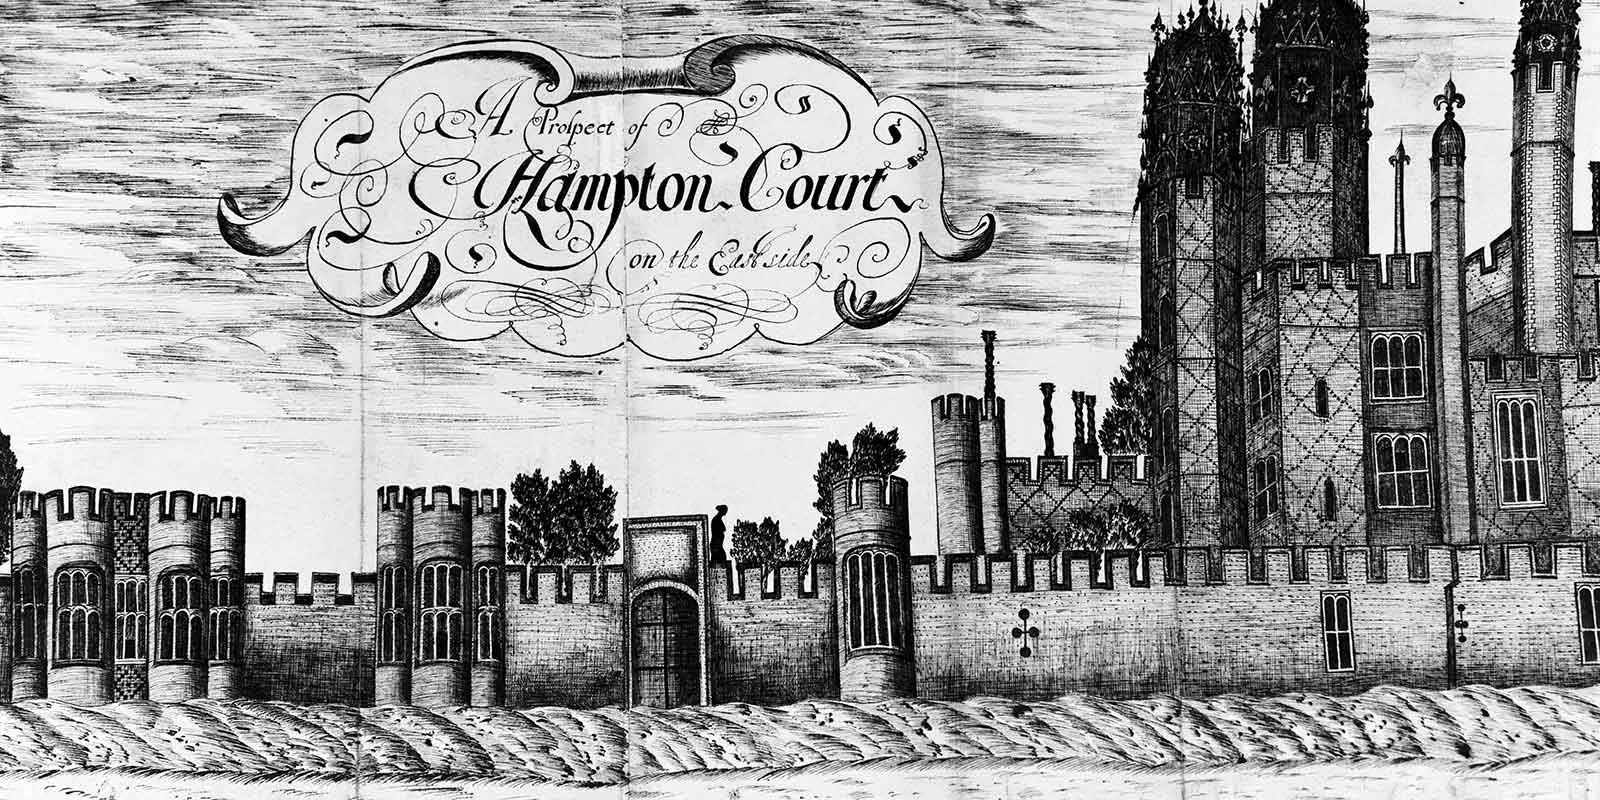 A Prospect of
Hampton Court
on the East side